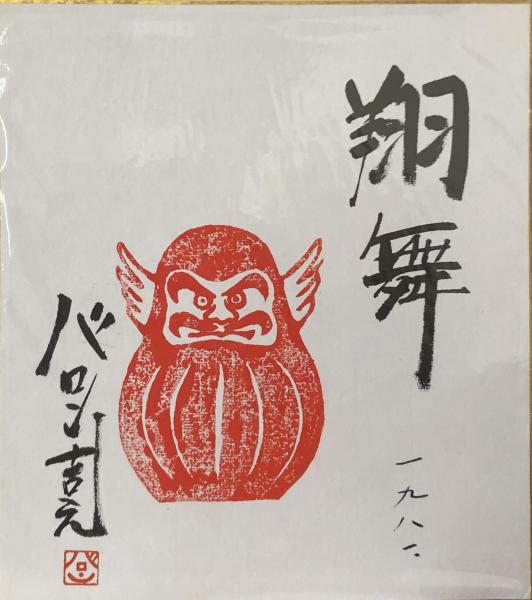 翔舞
一九八二
バロン吉元